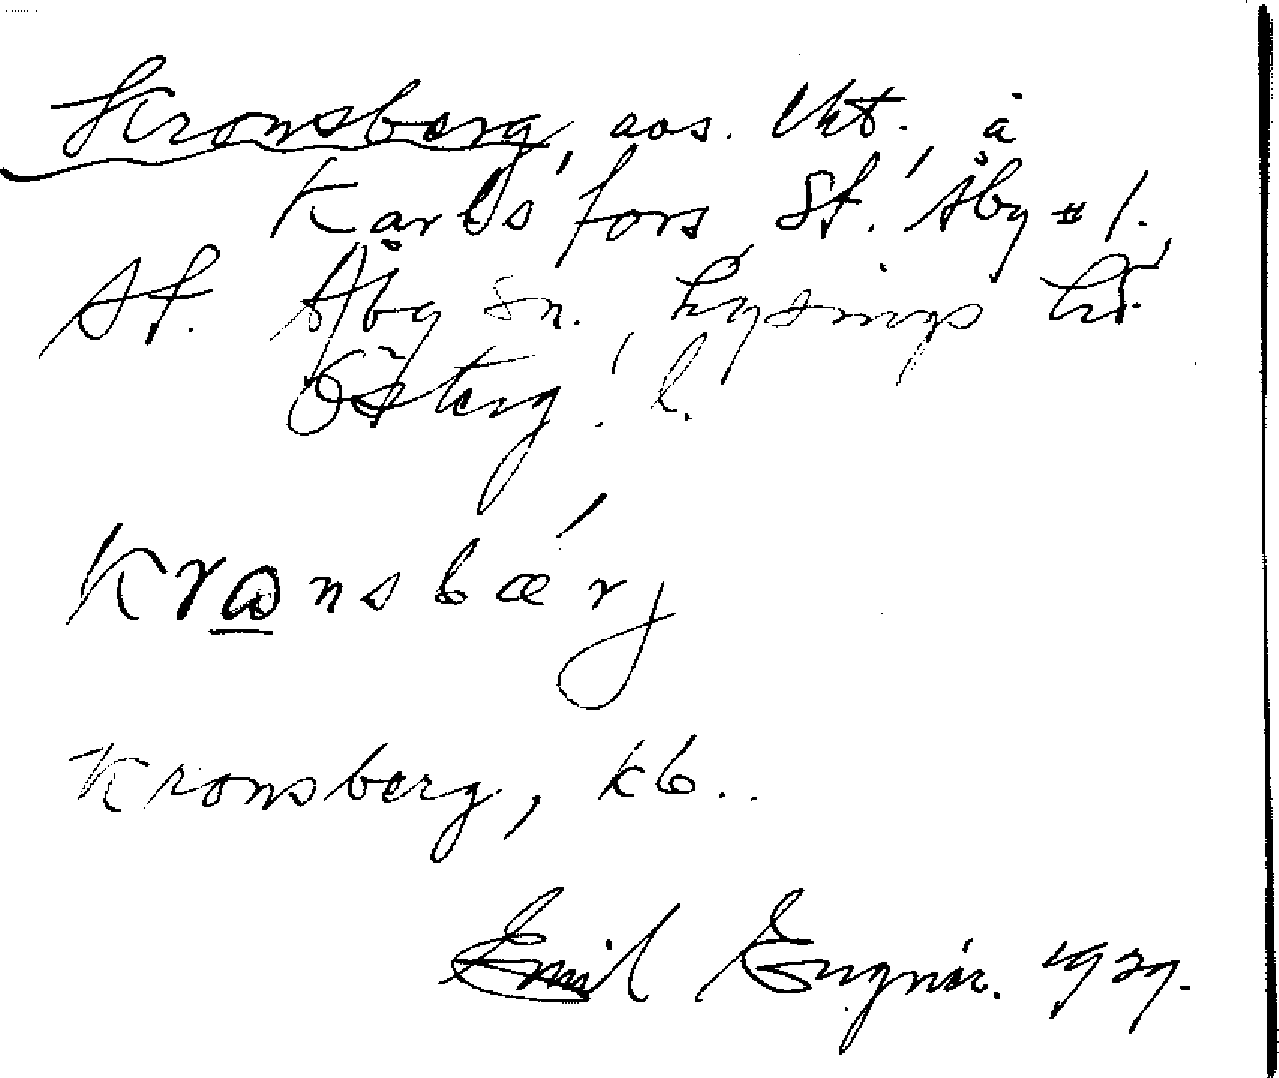 Kronsberg, aos. Utt. å
Karlsfors, St. Åby # 1.
St. Åby sn., Lysings hd.
Österg. l.
Kransbærj
Kronsberg, kb..
Emil 1929.